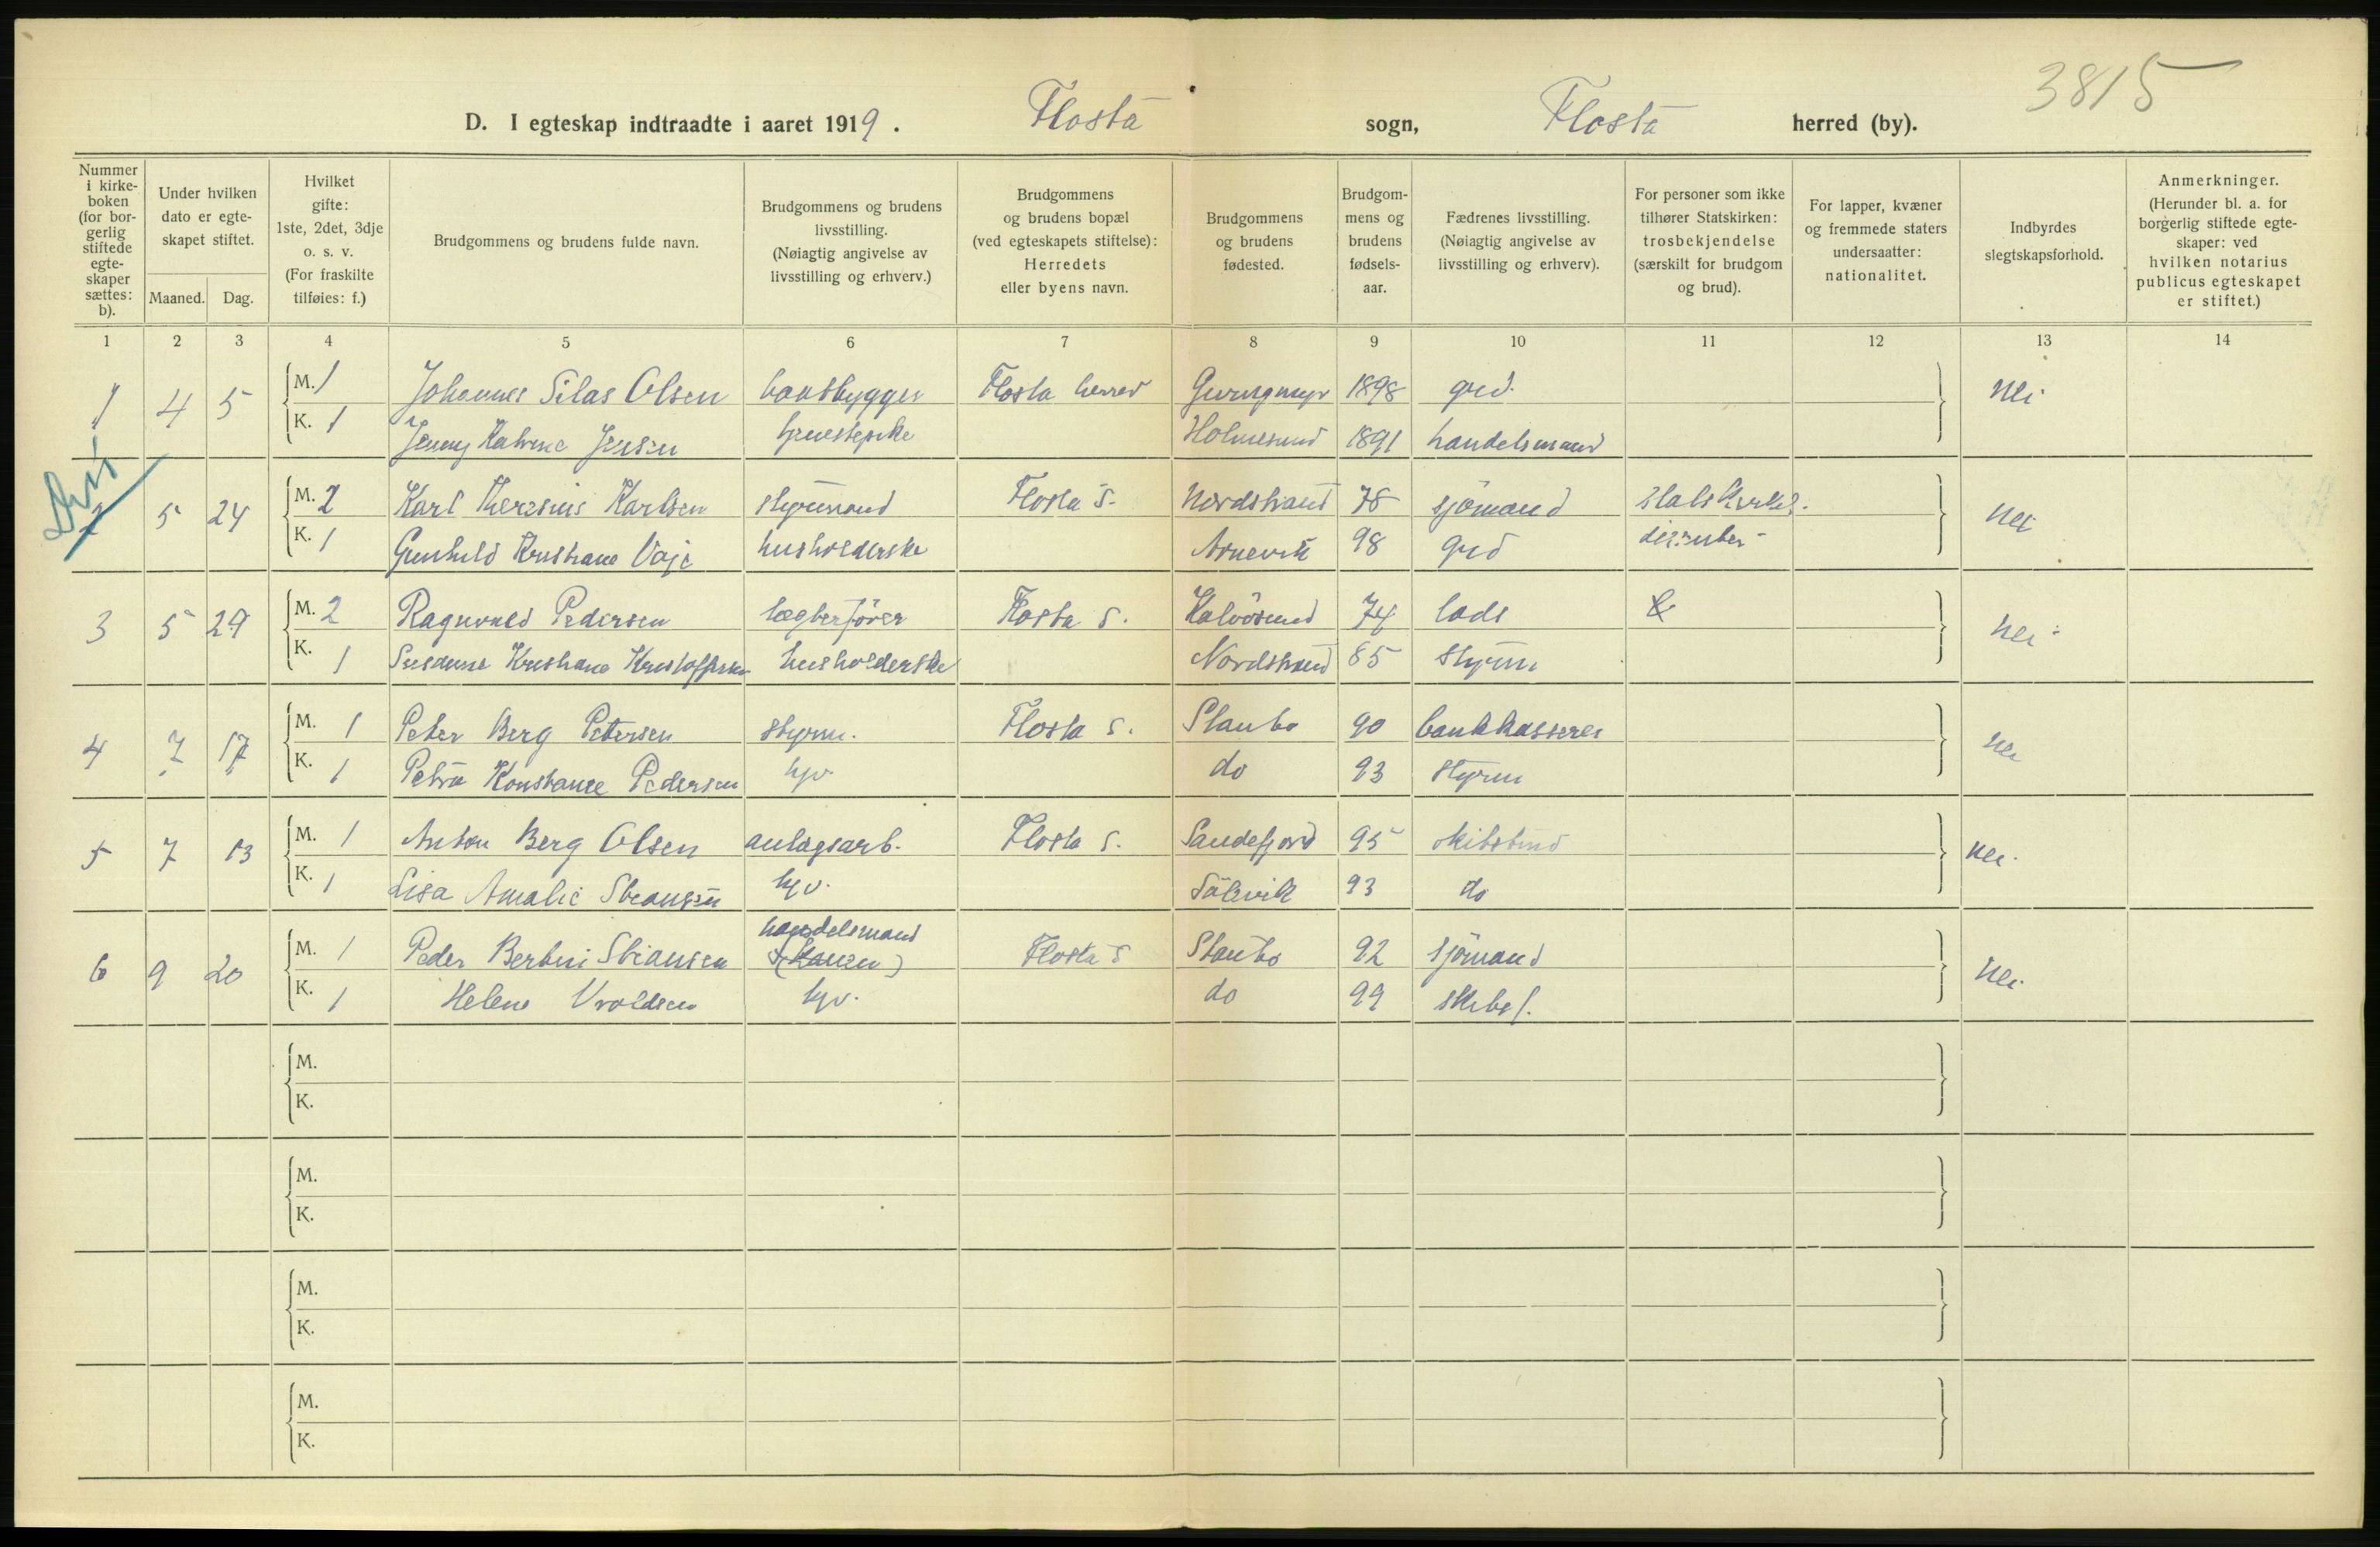 3815
D. I egteskap indtraadte i aaret 1919. Flosta sogn, Flosta herred (by).
Nummer i kirke- boken (for bor- gerlig stiftede egte- skaper sættes: b).
Under hvilken dato er egte- skapet stiftet.
Maaned. Dag.
Hvilket gifte: 1ste, 2det, 3dje o. s. v. (For fraskilte tilføies: f.)
Brudgommens og brudens fulde navn.
Brudgommens og brudens livsstilling. (Nøiagtig angivelse av livsstilling og erhverv.)
Brudgommens og brudens bopæl (ved egteskapets stiftelse): Herredets eller byens navn.
Brudgommens og brudens fødested.
Brudgom- mens og brudens fødsels- aar.
Fædrenes livsstilling. (Nøiagtig angivelse av livsstilling og erhverv).
For personer som ikke tilhører Statskirken: trosbekjendelse (særskilt for brudgom og brud).
For lapper, kvæner og fremmede staters undersaatter: nationalitet.
Indbyrdes slegtskapsforhold.
Anmerkninger. (Herunder bl. a. for borgerlig stiftede egte- skaper: ved hvilken notarius publicus egteskapet er stiftet.)
1 2 3 4 5 6 7 8 9 10 11 12 13 14
1 4 5 M. 1 Johannes Silas Olsen baatbygger Flosta herred 1898 grd. Nei
K. 1 Jenny Katrine Jensen Holmesund 1891 handelsmand
2 5 24 M. 2 Karl Theresius Karlsen styrmand Flosta S. Nordstrand 78 sjömand Statskirke Nei
K. 1 Gunhild Kristiane Voje husholderske Arnevik 98 grd dissenter
3 5 29 M. 2 Ragnvald Pedersen lægterförer Flosta S. Kalvösund 74 lods Nei
K. 1 Susanne Kristiane Kristoffersen husholderske Nordstrand 85 styrm
4 7 17 M. 1 Peter Berg Petersen styrm. Flosta S. Staubo 90 bankkasserer Nei
K. 1 Petra Konstance Pedersen hjv. do 93 styrm
5 7 13 M. 1 Anton Berg Olsen anlægsarb. Flosta S. Sandefjord 95 skibstmd Nei.
K. 1 Lisa Amalie Stiansen hjv. Sölevik 93 do
6 9 20 M. 1 Peder Bertini Stiansen handelsmand Flosta S Staubo 92 sjömand Nei.
K. 1 Helene Vroldsen hjv. do 99 skibsf.
M.
K.
M.
K.
M.
K.
M.
K.